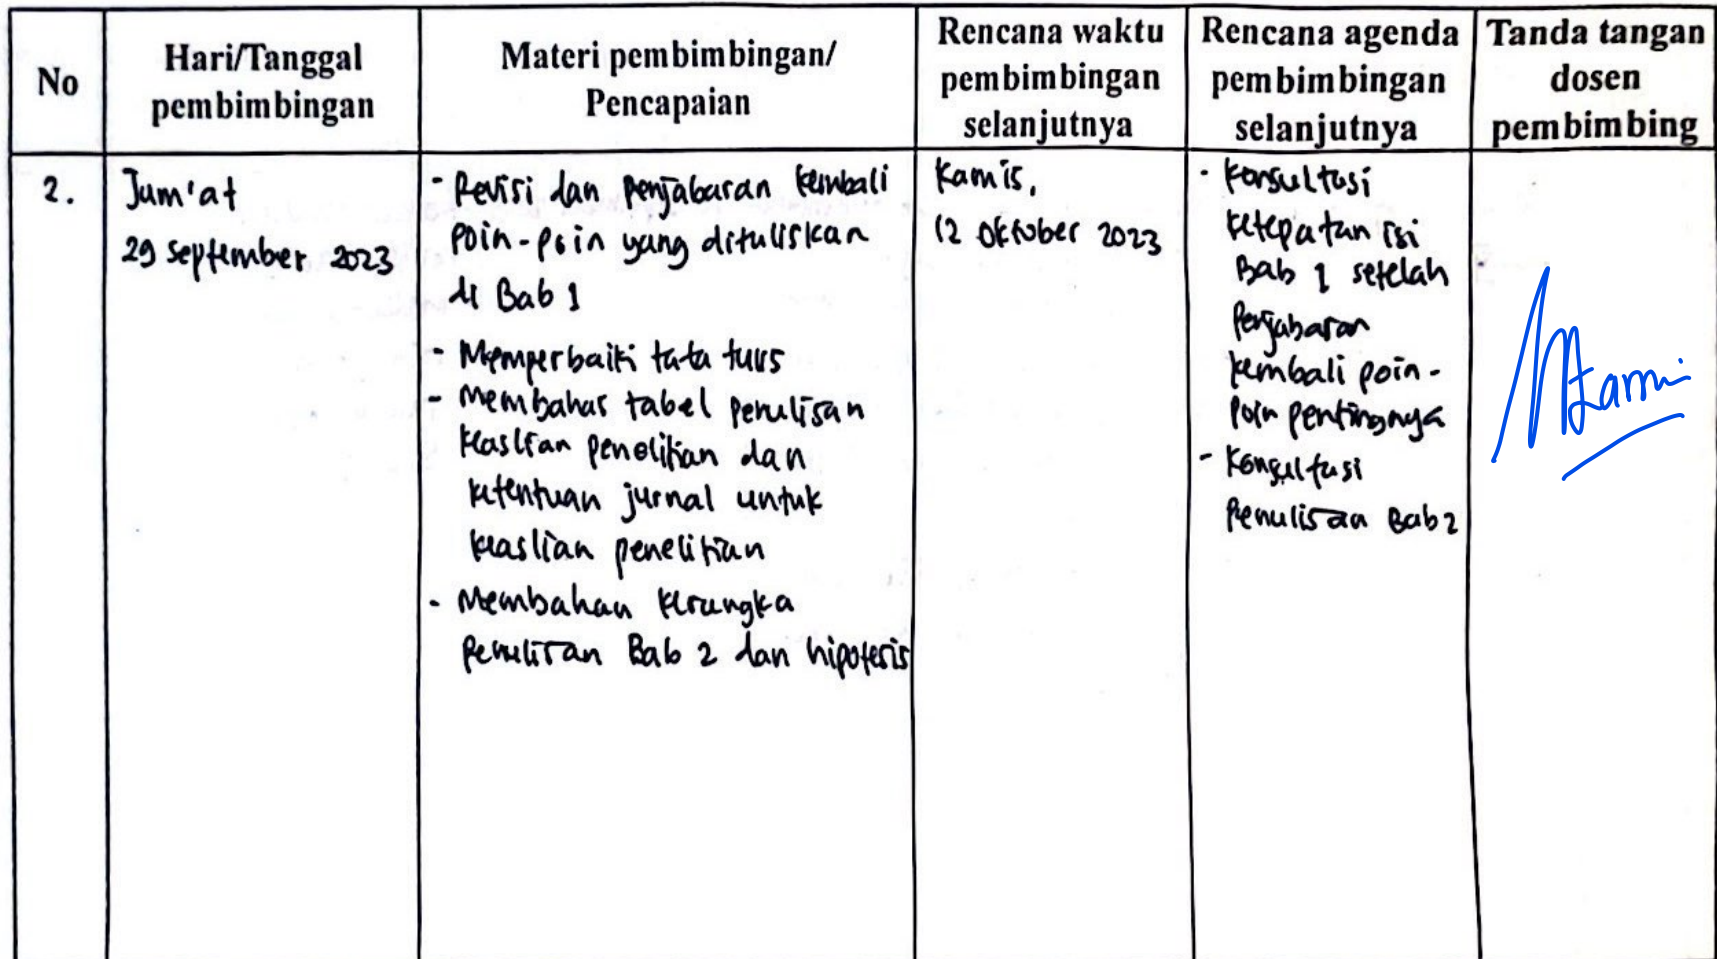 No
Hari/Tanggal
pembimbingan
Materi pembimbingan/
Pencapaian
Rencana waktu
pembimbingan
selanjutnya
Rencana agenda
pembimbingan
selanjutnya
Tanda tangan
dosen
pembimbing
2.
Jum'at
29 september 2023
- Revisi dan penjabaran kembali
poin-poin yang dituliskan
di Bab 1
- Memperbaiki tata tulis
- Membahas tabel penulisan
keaslian penelitian dan
ketentuan jurnal untuk
keaslian penelitian
- Membahan kerangka
penulisan Bab 2 dan hipotesis
Kamis,
12 Oktober 2023
- Konsultasi
ketepatan isi
Bab 1 setelah
Penjabaran
kembali poin-
poin pentingnya
- Konsultasi
Penulisan Bab 2